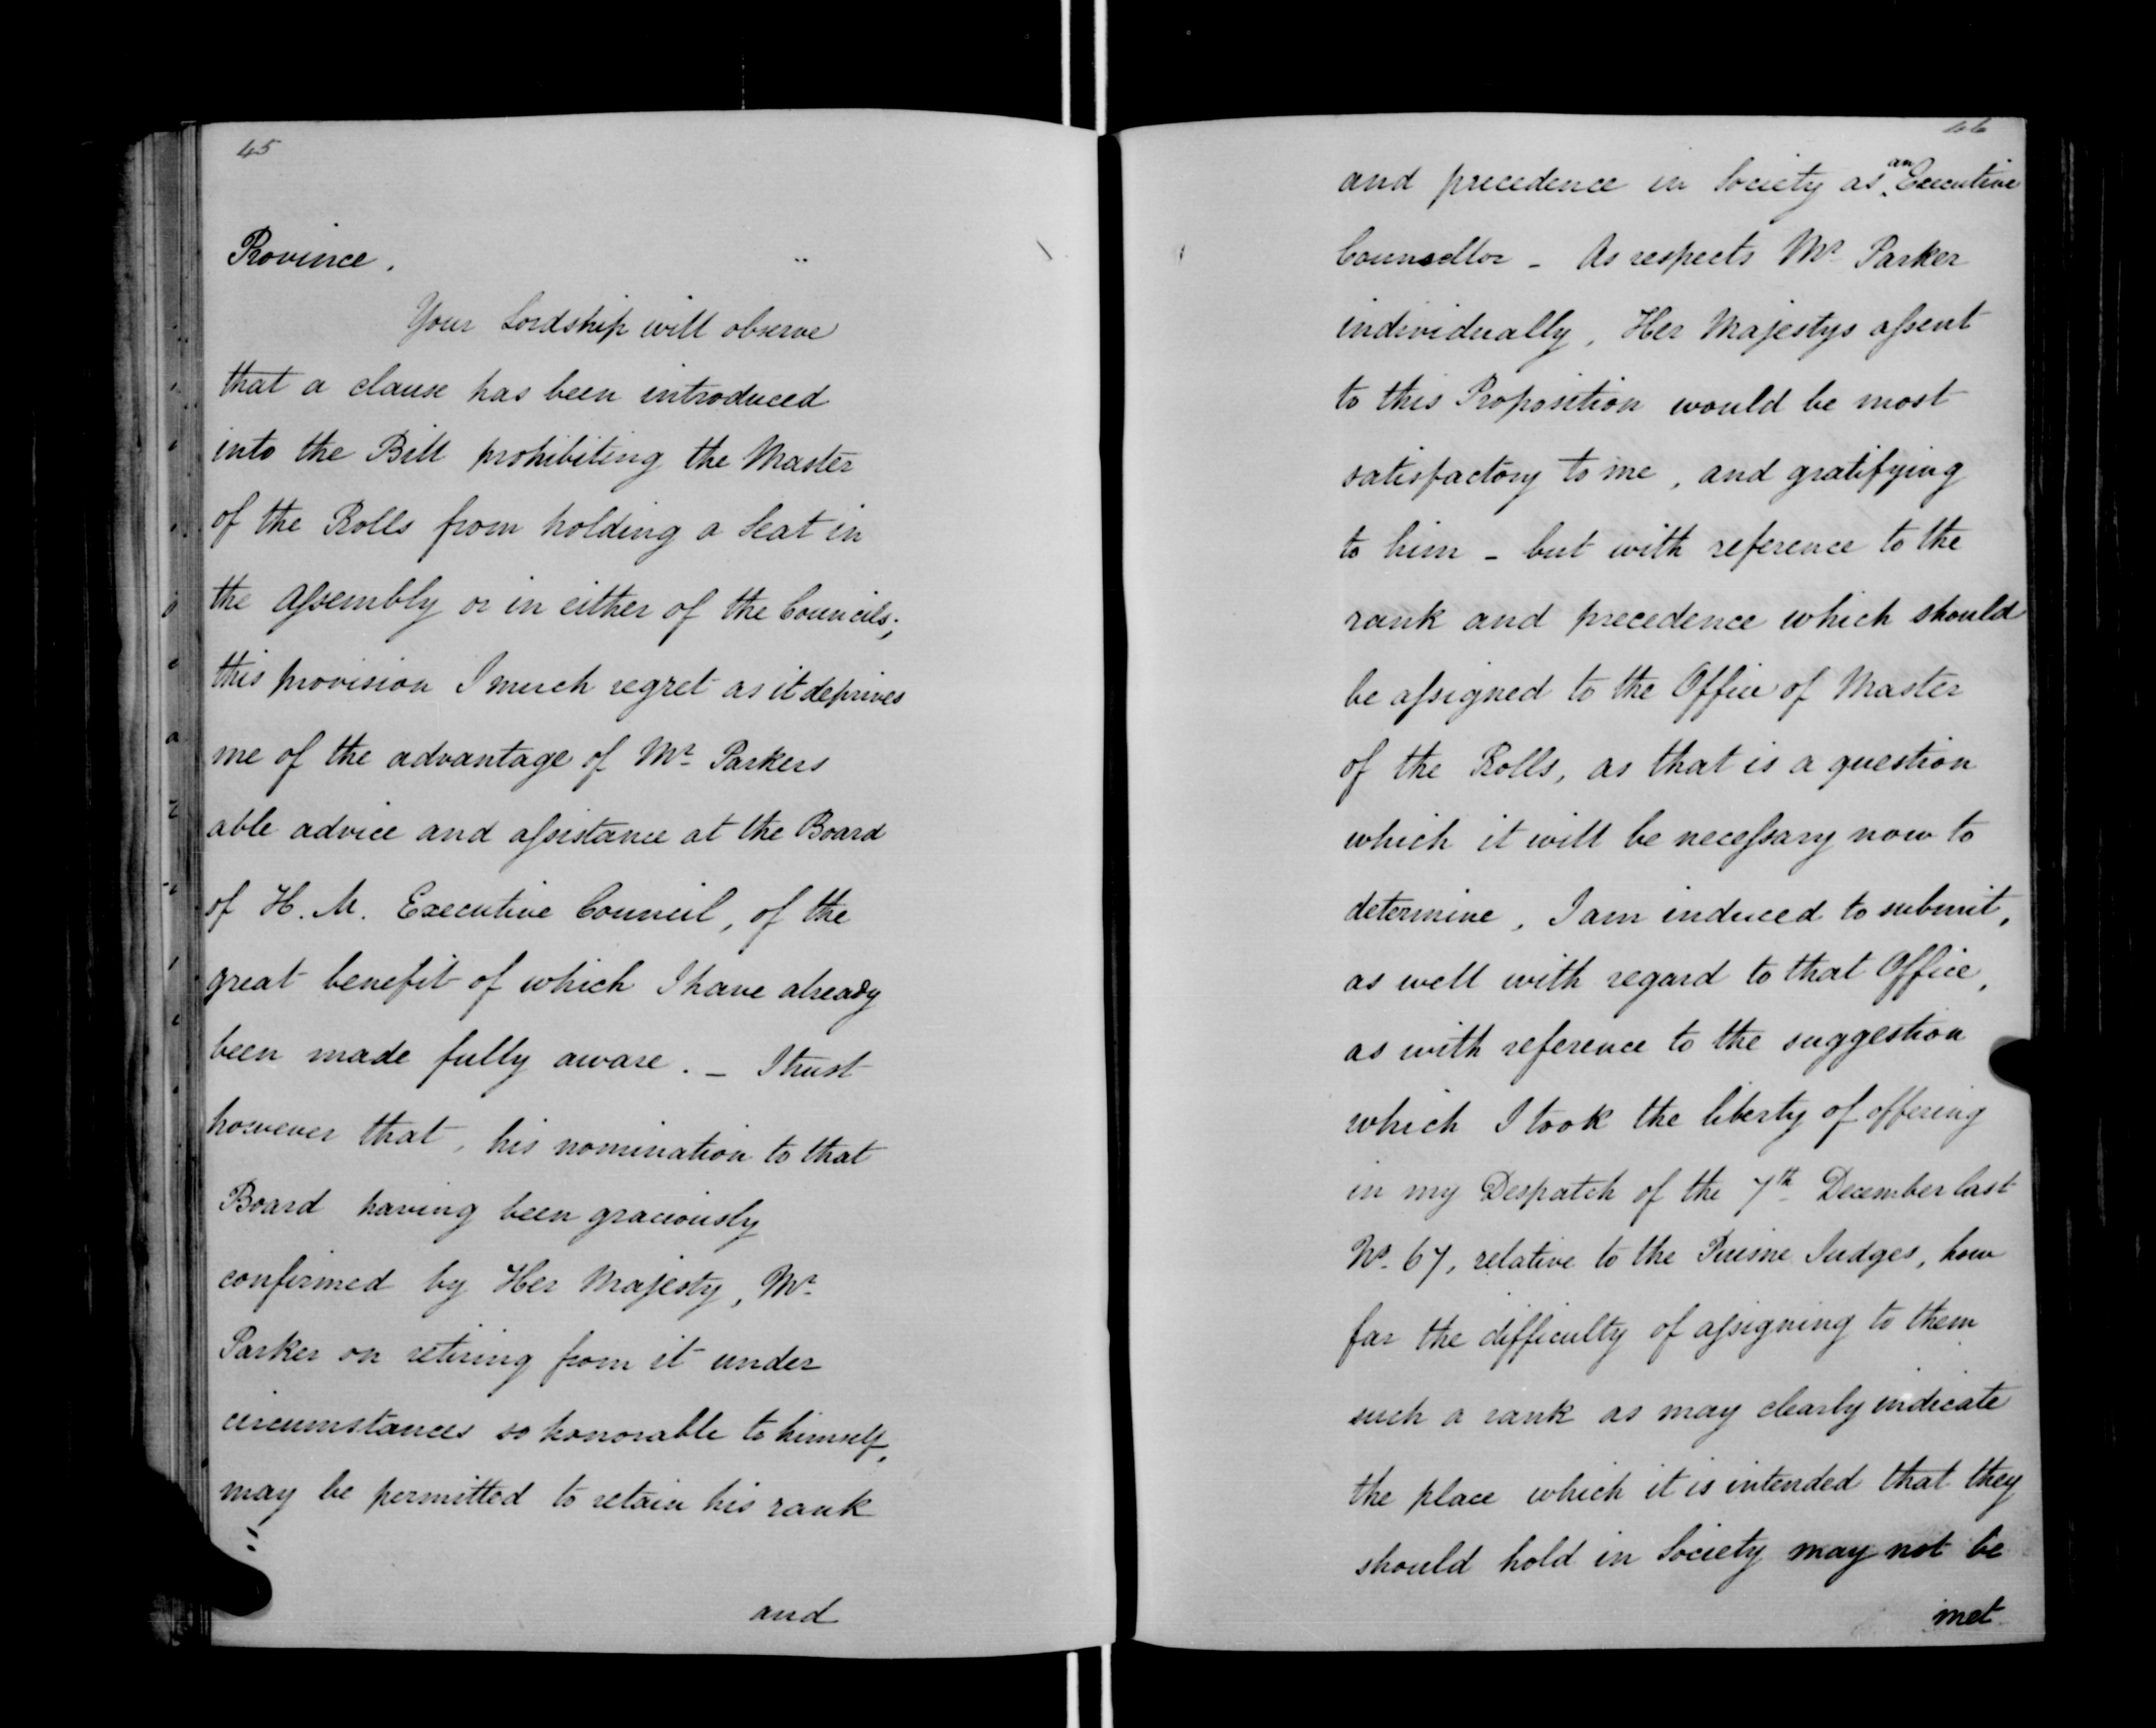 45
Province.
Your Lordship will observe
that a clause has been introduced
into the Bill prohibiting the Master
of the Rolls from holding a Seat in
the Assembly or in either of the Councils;
this provision I much regret as it deprives
me of the advantage of Mr Parkers
able advice and assistance at the Board
of H. M. Executive Council, of the
great benefit of which I have already
been made fully aware. _ I trust
however that, his nomination to that
Board having been graciously
confirmed by Her Majesty, Mr
Parker on retiring from it under
circumstances so honorable to himself,
may be permitted to retain his rank
and
46
and precedence in Society as an Executive
Counsellor _ As respects Mr Parker
individually, Her Majestys assent
to this Proposition would be most
satisfactory to me, and gratifying
to him _ but with reference to the
rank and precedence which should
be assigned to the Office of Master
of the Rolls, as that is a question
which it will be necessary now to
determine, I am induced to submit,
as well with regard to that Office,
as with reference to the suggestion
which I took the liberty of offering
in my Despatch of the 7th December last
No. 67, relative to the Puisne Judges, how
far the difficulty of assigning to them
such a rank as may clearly indicate
the place which it is intended that they
should hold in Society may not be
met